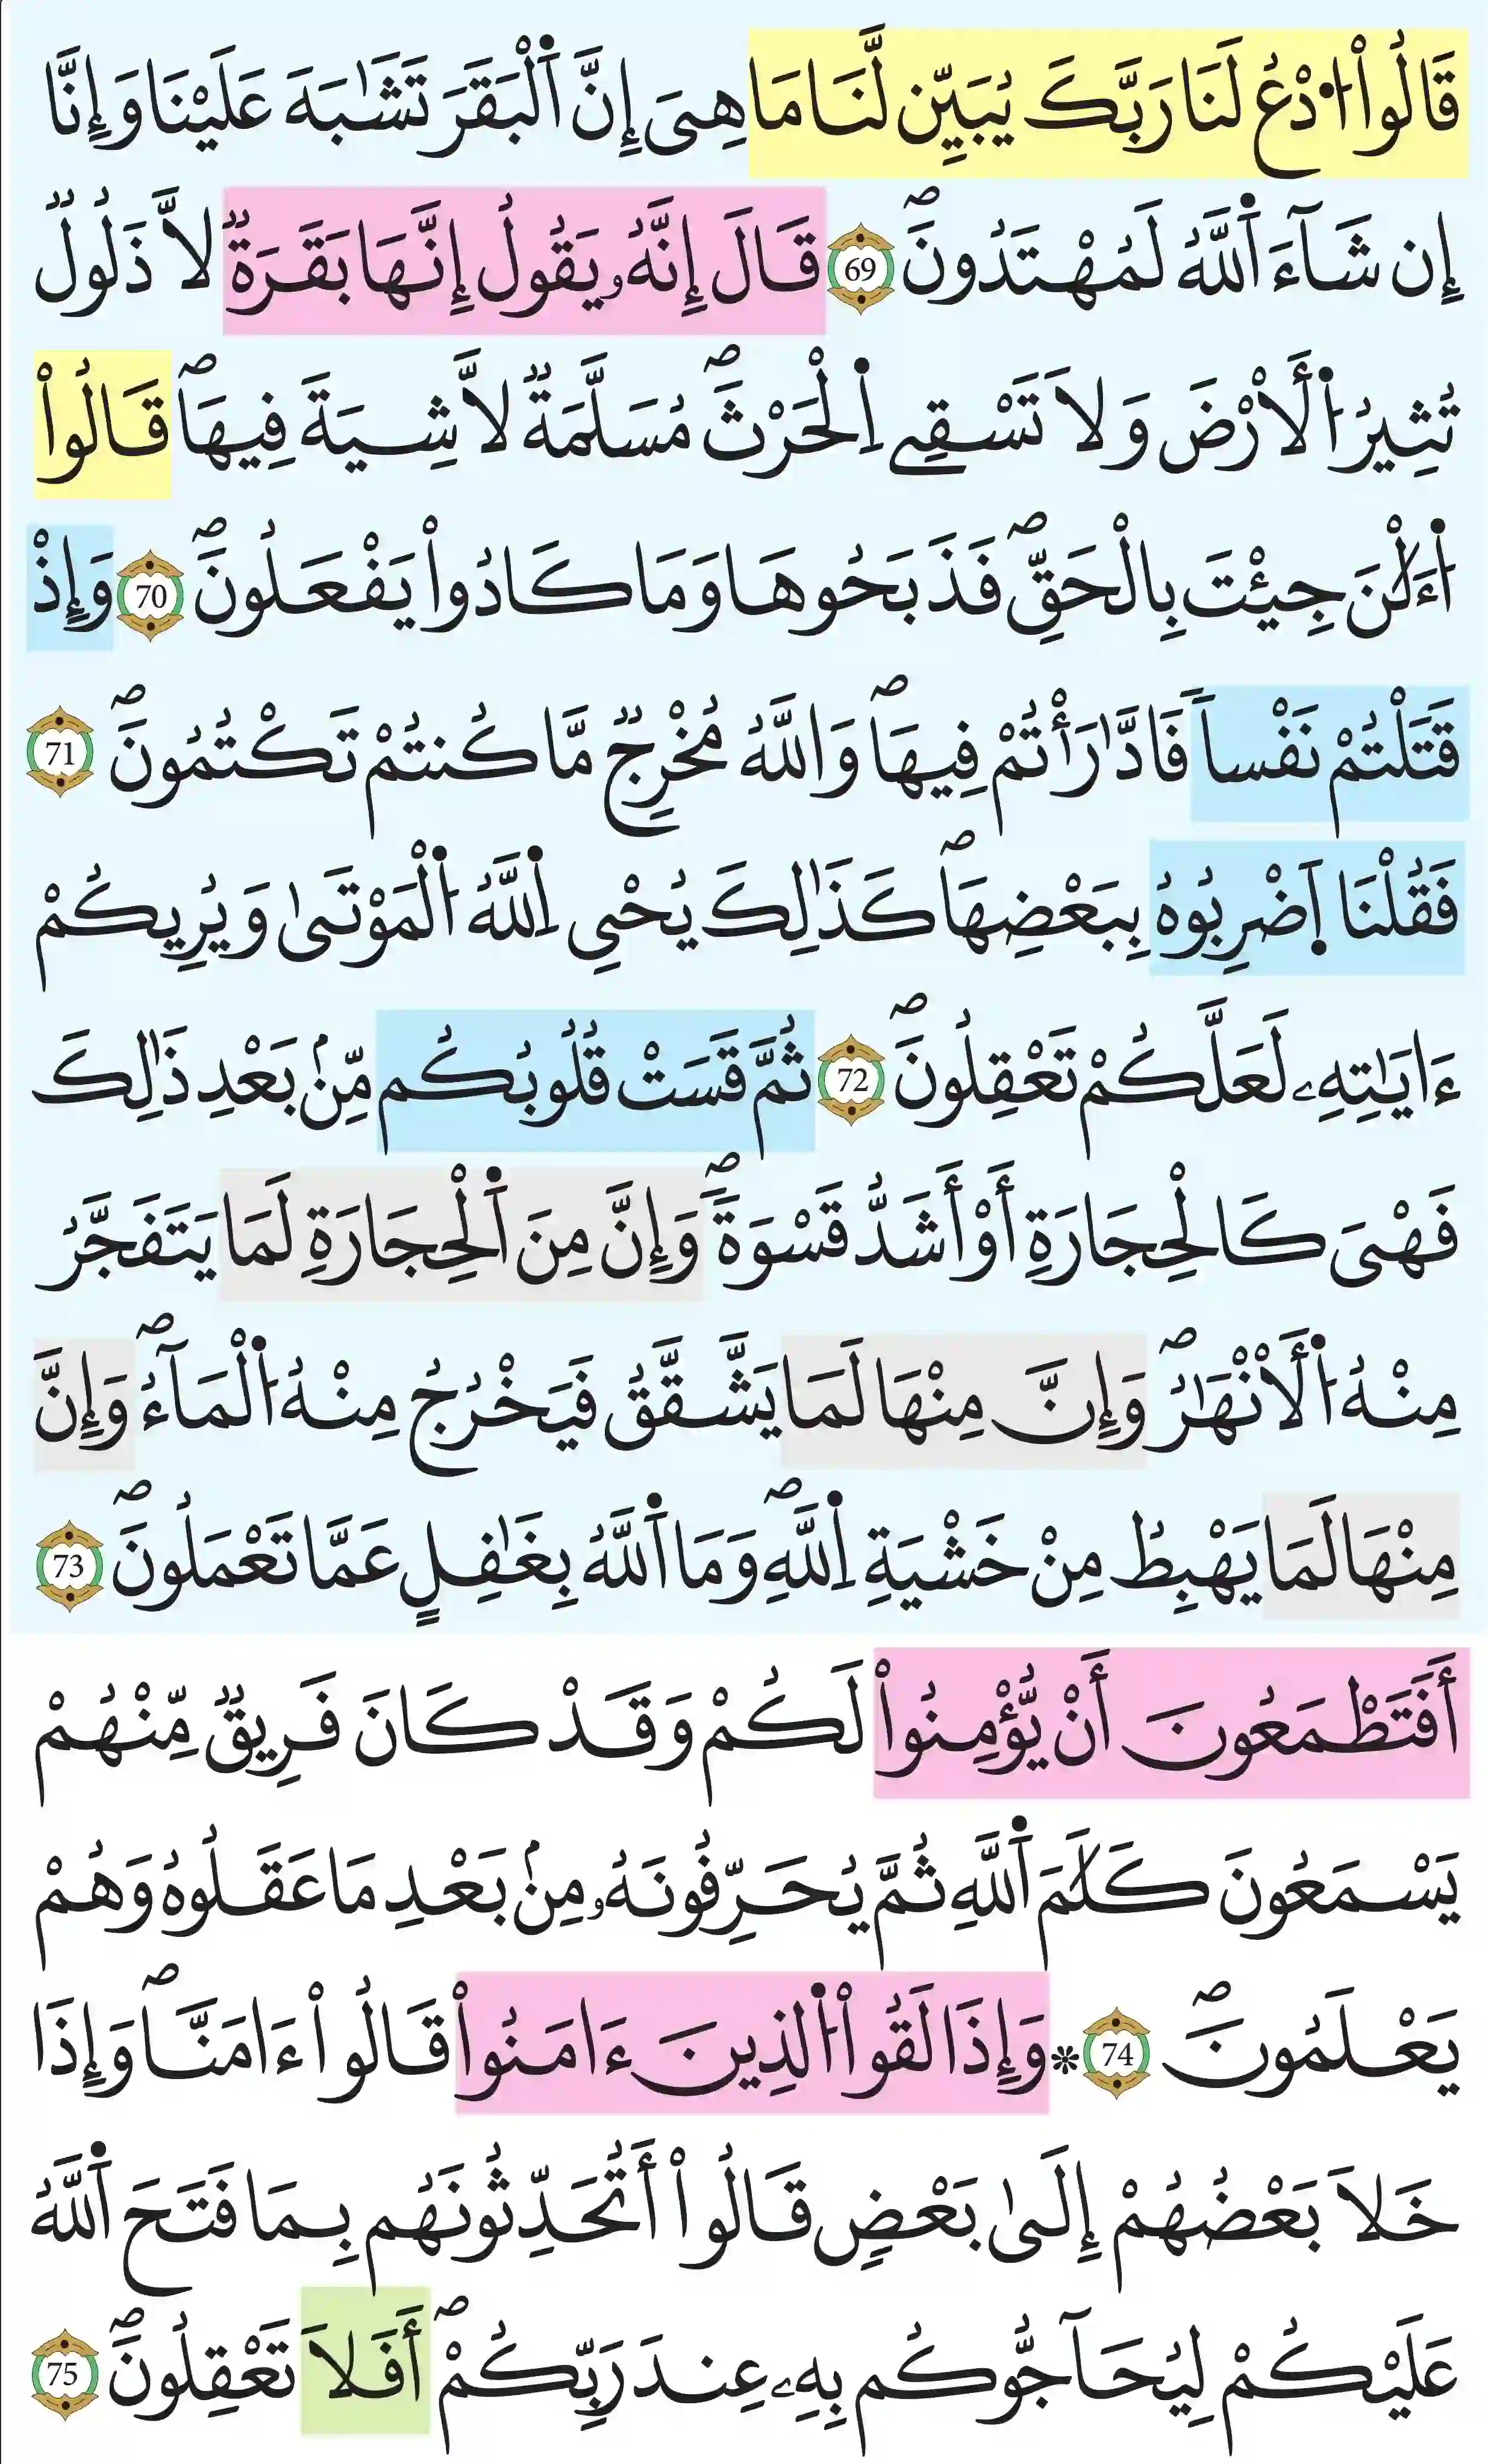 قَالُواْ اُ۟دْعُ لَنَا رَبَّكَ يُبَيِّن لَّنَا مَا هِىَ إِنَّ اَ۬لْبَقَرَ تَشَٰبَهَ عَلَيْنَا وَإِنَّا
إِن شَآءَ اَ۬للَّهُ لَمُهْتَدُونَۖ 69 قَالَ إِنَّهُۥ يَقُولُ إِنَّهَا بَقَرَةٞ لَّا ذَلُولٞ
تُثِيرُ اُ۬لْأَرْضَ وَلَا تَسْقِے اِ۬لْحَرْثَۖ مُسَلَّمَةٞ لَّا شِيَةَ فِيهَاۖ قَالُواْ
اُ۬لَٰٔنَ جِئْتَ بِالْحَقِّۖ فَذَبَحُوهَا وَمَا كَادُواْ يَفْعَلُونَۖ 70 وَإِذْ
قَتَلْتُمْ نَفْساٗ فَادَّٰرَأْتُمْ فِيهَاۖ وَاللَّهُ مُخْرِجٞ مَّا كُنتُمْ تَكْتُمُونَۖ 71
فَقُلْنَا اَ۪ضْرِبُوهُ بِبَعْضِهَاۖ كَذَٰلِكَ يُحْىِ اِ۬للَّهُ اُ۬لْمَوْتَىٰ وَيُرِيكُمْ
ءَايَٰتِهِۦ لَعَلَّكُمْ تَعْقِلُونَۖ 72 ثُمَّ قَسَتْ قُلُوبُكُم مِّنۢ بَعْدِ ذَٰلِكَ
فَهْىَ كَالْحِجَارَةِ أَوْ أَشَدُّ قَسْوَةٗۖ وَإِنَّ مِنَ اَ۬لْحِجَارَةِ لَمَا يَتَفَجَّرُ
مِنْهُ اُ۬لْأَنْهَٰرُۖ وَإِنَّ مِنْهَا لَمَا يَشَّقَّقُ فَيَخْرُجُ مِنْهُ اُ۬لْمَآءُۖ وَإِنَّ
مِنْهَا لَمَا يَهْبِطُ مِنْ خَشْيَةِ اِ۬للَّهِۖ وَمَا اَ۬للَّهُ بِغَٰفِلٍ عَمَّا تَعْمَلُونَۖ 73
أَفَتَطْمَعُونَ أَنْ يُّؤْمِنُواْ لَكُمْ وَقَدْ كَانَ فَرِيقٞ مِّنْهُمْ
يَسْمَعُونَ كَلَٰمَ اَ۬للَّهِ ثُمَّ يُحَرِّفُونَهُۥ مِنۢ بَعْدِ مَا عَقَلُوهُ وَهُمْ
يَعْلَمُونَۖ 74 * وَإِذَا لَقُواْ اُ۬لذِينَ ءَامَنُواْ قَالُواْ ءَامَنَّاۖ وَإِذَا
خَلَا بَعْضُهُمْ إِلَىٰ بَعْضٖ قَالُواْ أَتُحَدِّثُونَهُم بِمَا فَتَحَ اَ۬للَّهُ
عَلَيْكُمْ لِيُحَآجُّوكُم بِهِۦ عِندَ رَبِّكُمْۖ أَفَلَا تَعْقِلُونَۖ 75